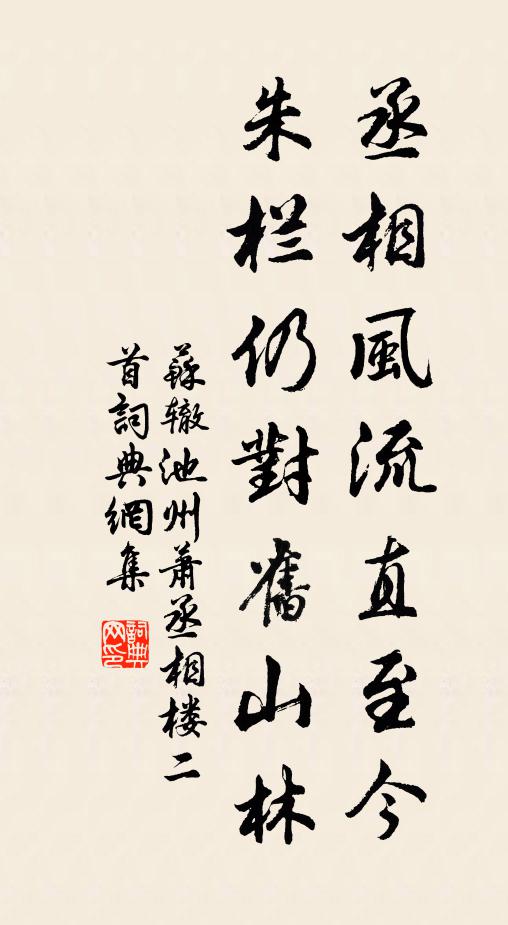 丞相風流直至今
朱栏仍對舊山林
蘇辙池州萧丞相楼二
首詞典網集
詞典
网印